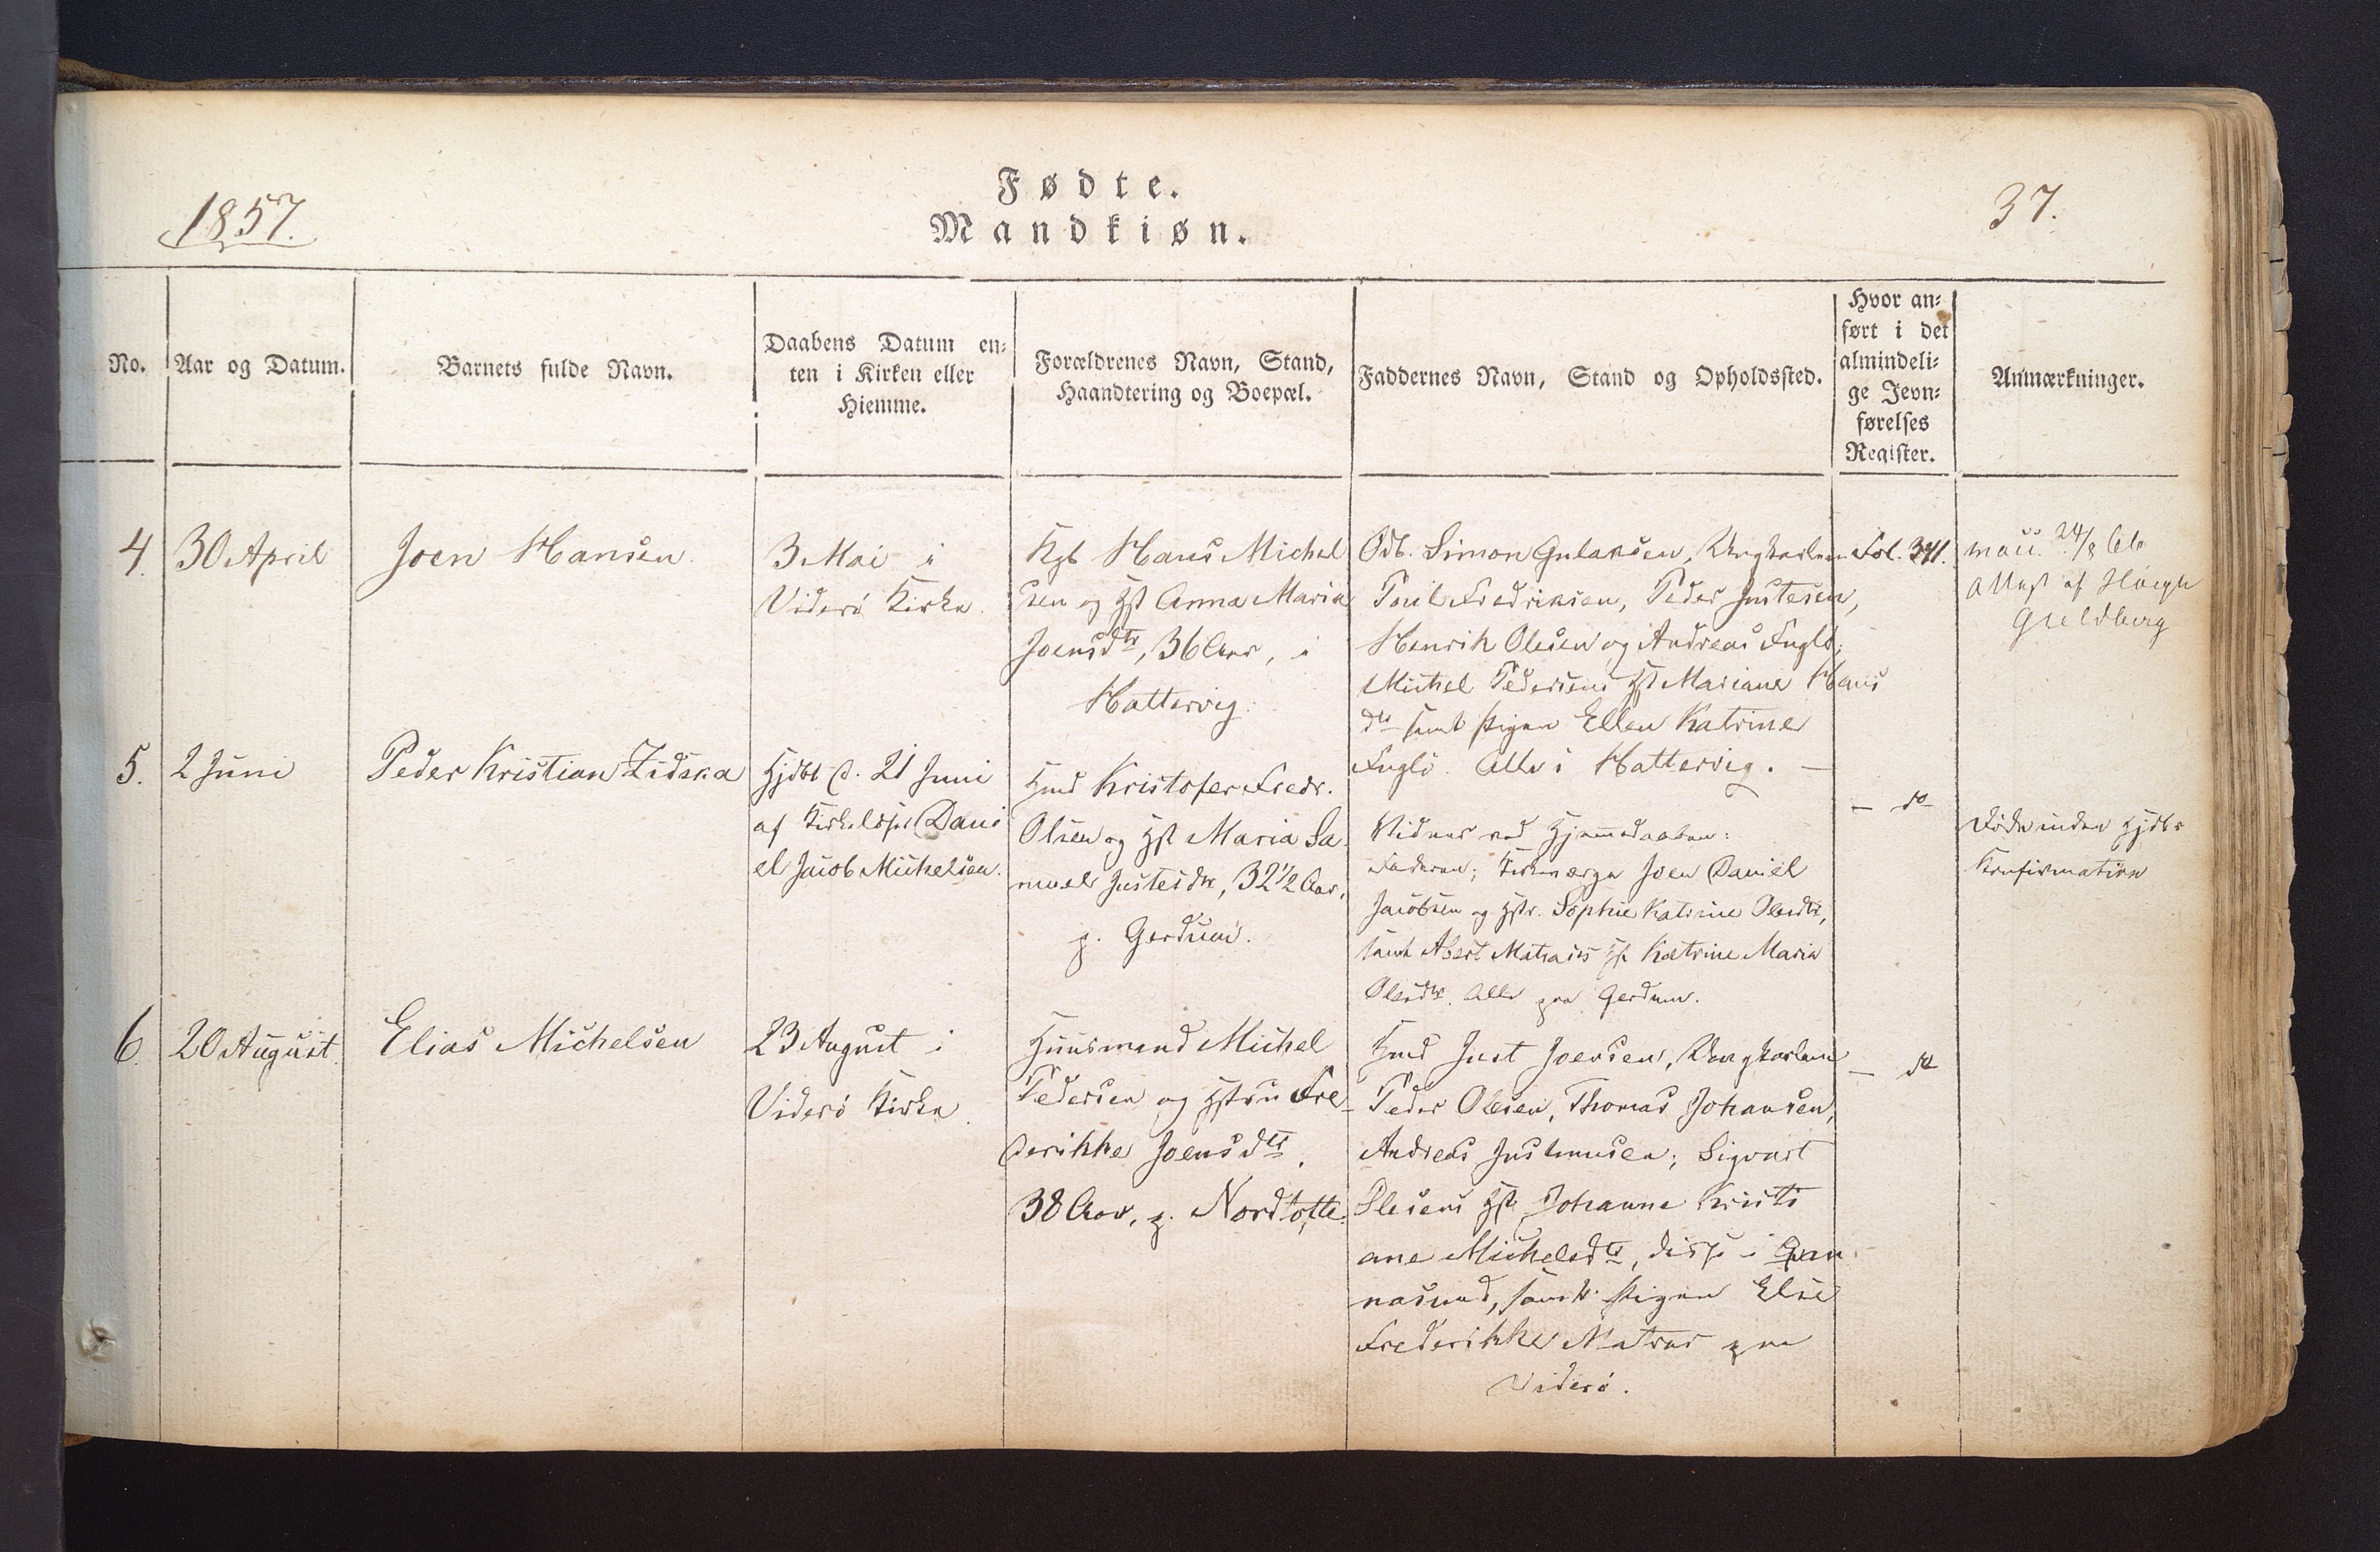 1857.
Fødte.
Mandkiøn.
37.
No.
Aar og Datum.
Barnets fulde Navn.
Daabens Datum en-
ten i Kirken eller
Hiemme.
Forældrenes Navn, Stand,
Haandtering og Boepæl.
Faddernes Navn, Stand og Opholdssted.
Hvor an-
ført i det
almindeli-
ge Jevn-
førelses
Register.
Anmærkninger.
4.
30 April
Joen Hansen
3 Mai i
Viderö Kirke.
Kgb Hans Michel
sen og Hst Anna Maria
Joensdtr, 36 Aar, i
Hattervig.
Odb. Simon Gulaksen, Ungkarlene
Poul Fredriksen, Peder Justesen,
Henrik Olesen og Andreas Fuglö;
Michel Pedersens Hst Mariane Hans
dtr samt Pigen Ellen Katrine
Fuglö. Alle i Hattervig. —
Fol. 341.
24/8
Attest af
Guldberg
5.
2 Juni
Peder Kristian Zidska
Hjdbt d. 21 Juni
af Dani
el Jacob Michelsen.
Hmd Kristofer Fredr.
Olsen og Hst Maria Sa
muels Justesdtr, 32 1/2 Aar,
p. Gerdum.
Vidner ved Hjemmedaaben:
Faderen; Kirkeværge Joen Daniel
Jacobsen og Hstr. Sophie Katrine Olesdtr,
samt Abert Matrass Hst Katrine Maria
Olesdtr. Alle paa Gerdum.
— do
Döde inden Hjdbs
Konfirmation
6.
20 August.
Elias Michelsen
23 August i
Viderö Kirke.
Huusmand Michel
Pedersen og Hstru Fre
derikke Joensdtr,
38 Aar, p. Nordtofte.
Hmd Just Joensen, Ungkarlene
Peder Olesen, Thomas Johansen,
Andreas Justinusen; Sigvart
Olesens Hst Johanne Kristi
ane Michelsdtr, disse i Qvan
nasund, samt Pigen Else
Frederikke Matras paa
Viderö.
— do